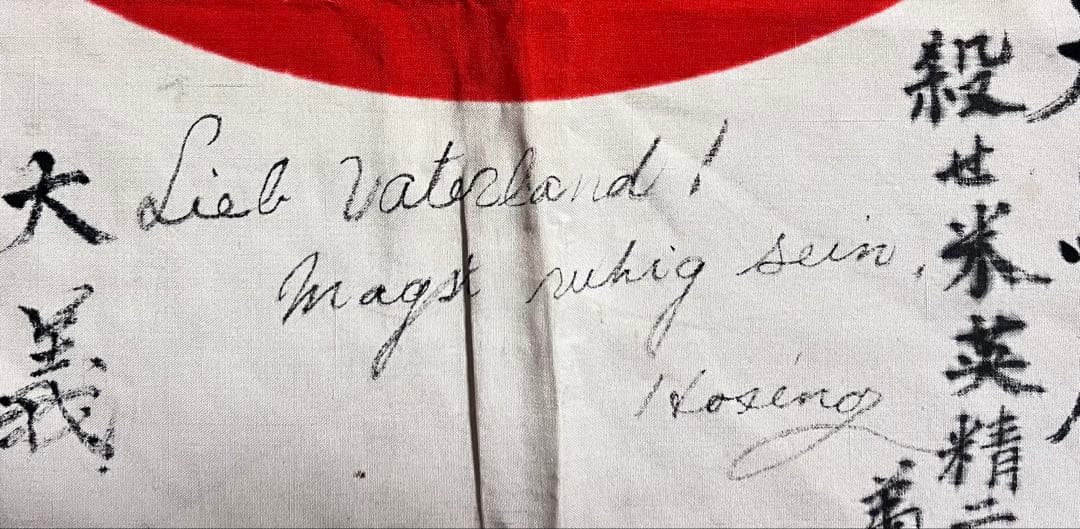 殺せ米英精二
Lieb Vaterland!
Magst ruhig sein.
大義